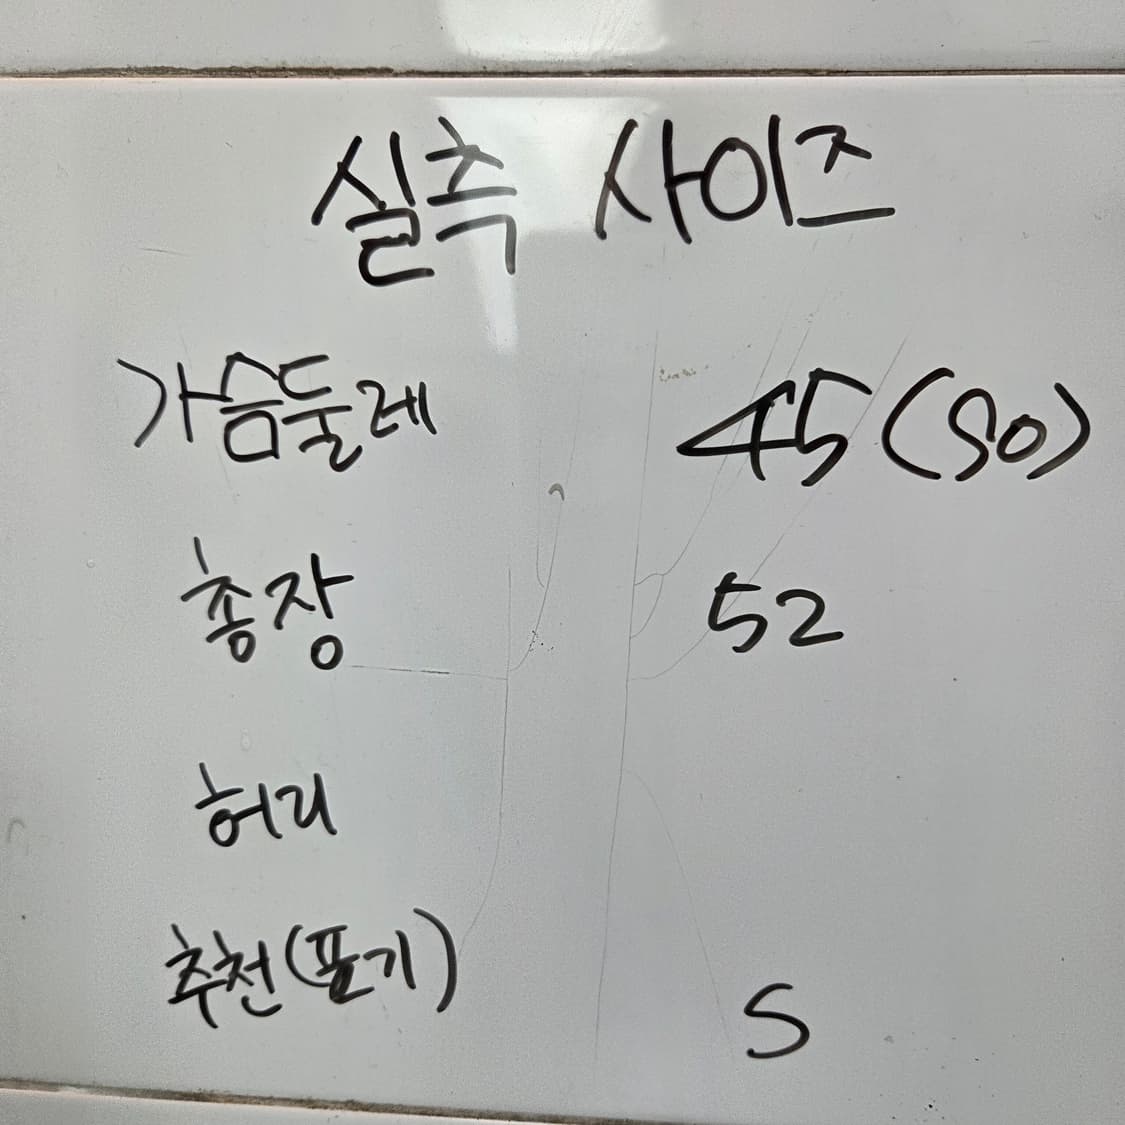 실측 사이즈
가슴둘레 45(90)
총장 52
허리
추천(표기) S